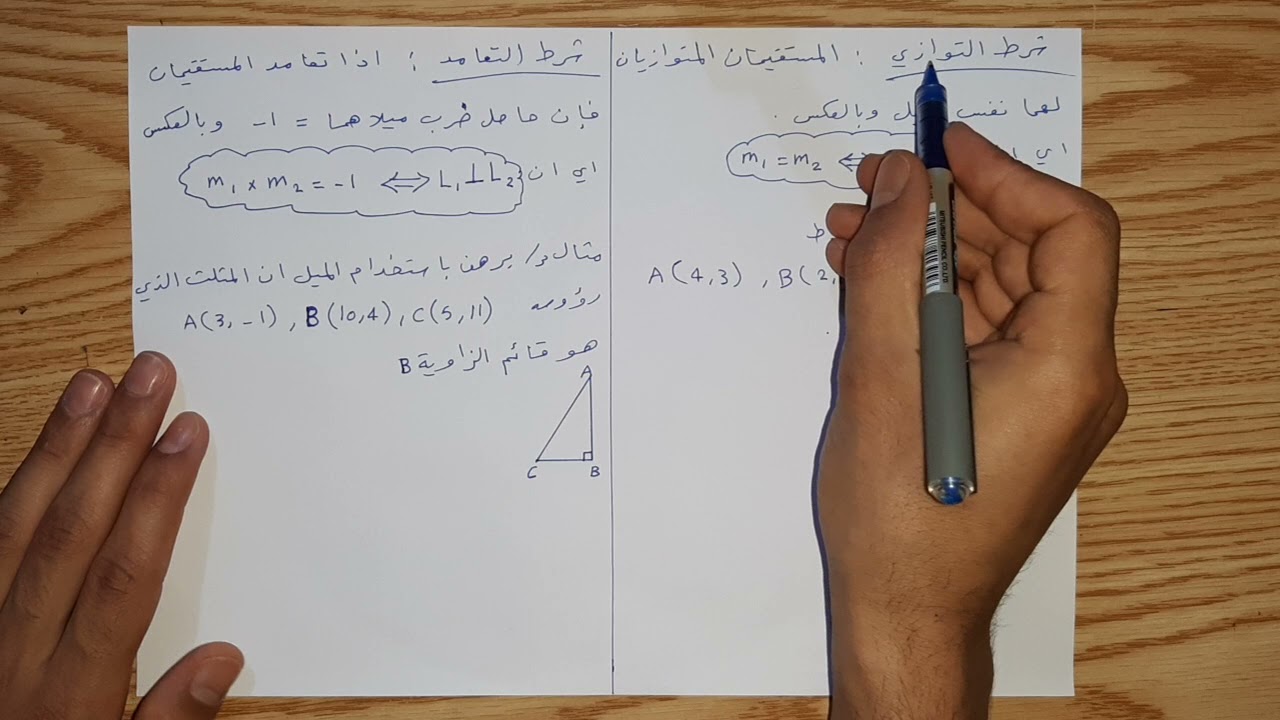 شرط التوازي : المستقيمان المتوازيان
لهما نفس وبالعكس .
اي
m₁ = m₂ ⇔
A(4,3) , B(2,
شرط التعامد : اذا تعامد المستقيمان
فإن حاصل ضرب ميلاهما = 1- وبالعكس
اي ان m₁ × m₂ = -1 ⇔ L₁ ⊥ L₂
مثال / برهن باستخدام الميل ان المثلث الذي
رؤوسه A(3,-1) , B(10,4) , C(5,11)
هو قائم الزاوية B
A
C B
MITSUBISHI PENCIL CO.,LTD